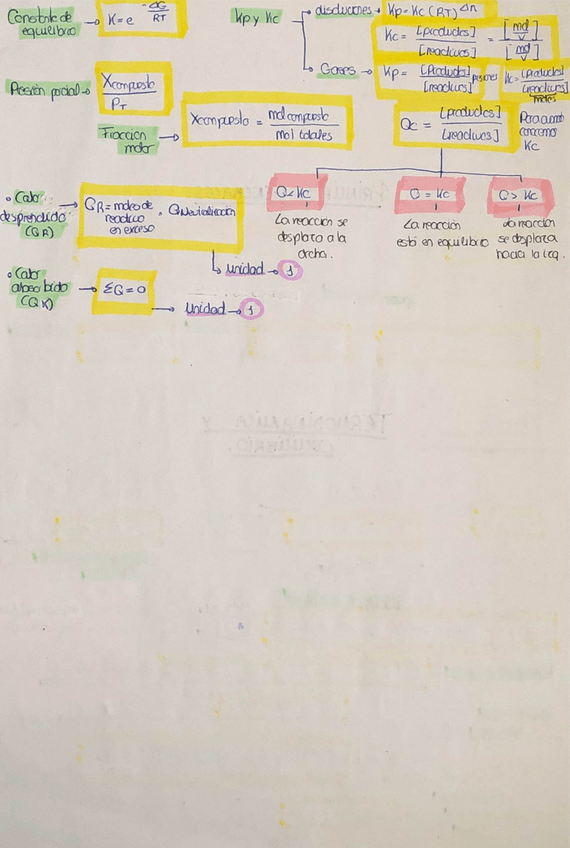 Constante de equilibrio → K = e^(-ΔG/RT)
Kp y Kc
disoluciones → Kp = Kc (RT)^Δn
Kc = [productos] / [reactivos] = [mol/V] / [mol/V]
Gases → Kp = [Productos] / [reactivos] presiones
Kc = [Productos] / [reactivos] moles
Presión parcial → Xcompuesto / PT
Fracción molar → Xcompuesto = mol compuesto / mol totales
Qc = [productos] / [reactivos]
Para cuando
conocemos
Kc
Q < Kc
Q = Kc
Q > Kc
La reacción se
desplaza a la
drcha.
La reacción
está en equilibrio
La reacción
se desplaza
hacia la izq.
• Calor
desprendido
(QR)
→ QR = moles de
reactivo
en exceso
· Qneutralización
unidad → 1
• Calor
absorbido
(QK)
→ ΣQ = 0
unidad → 1
TERMODINÁMICA Y
EQUILIBRIO